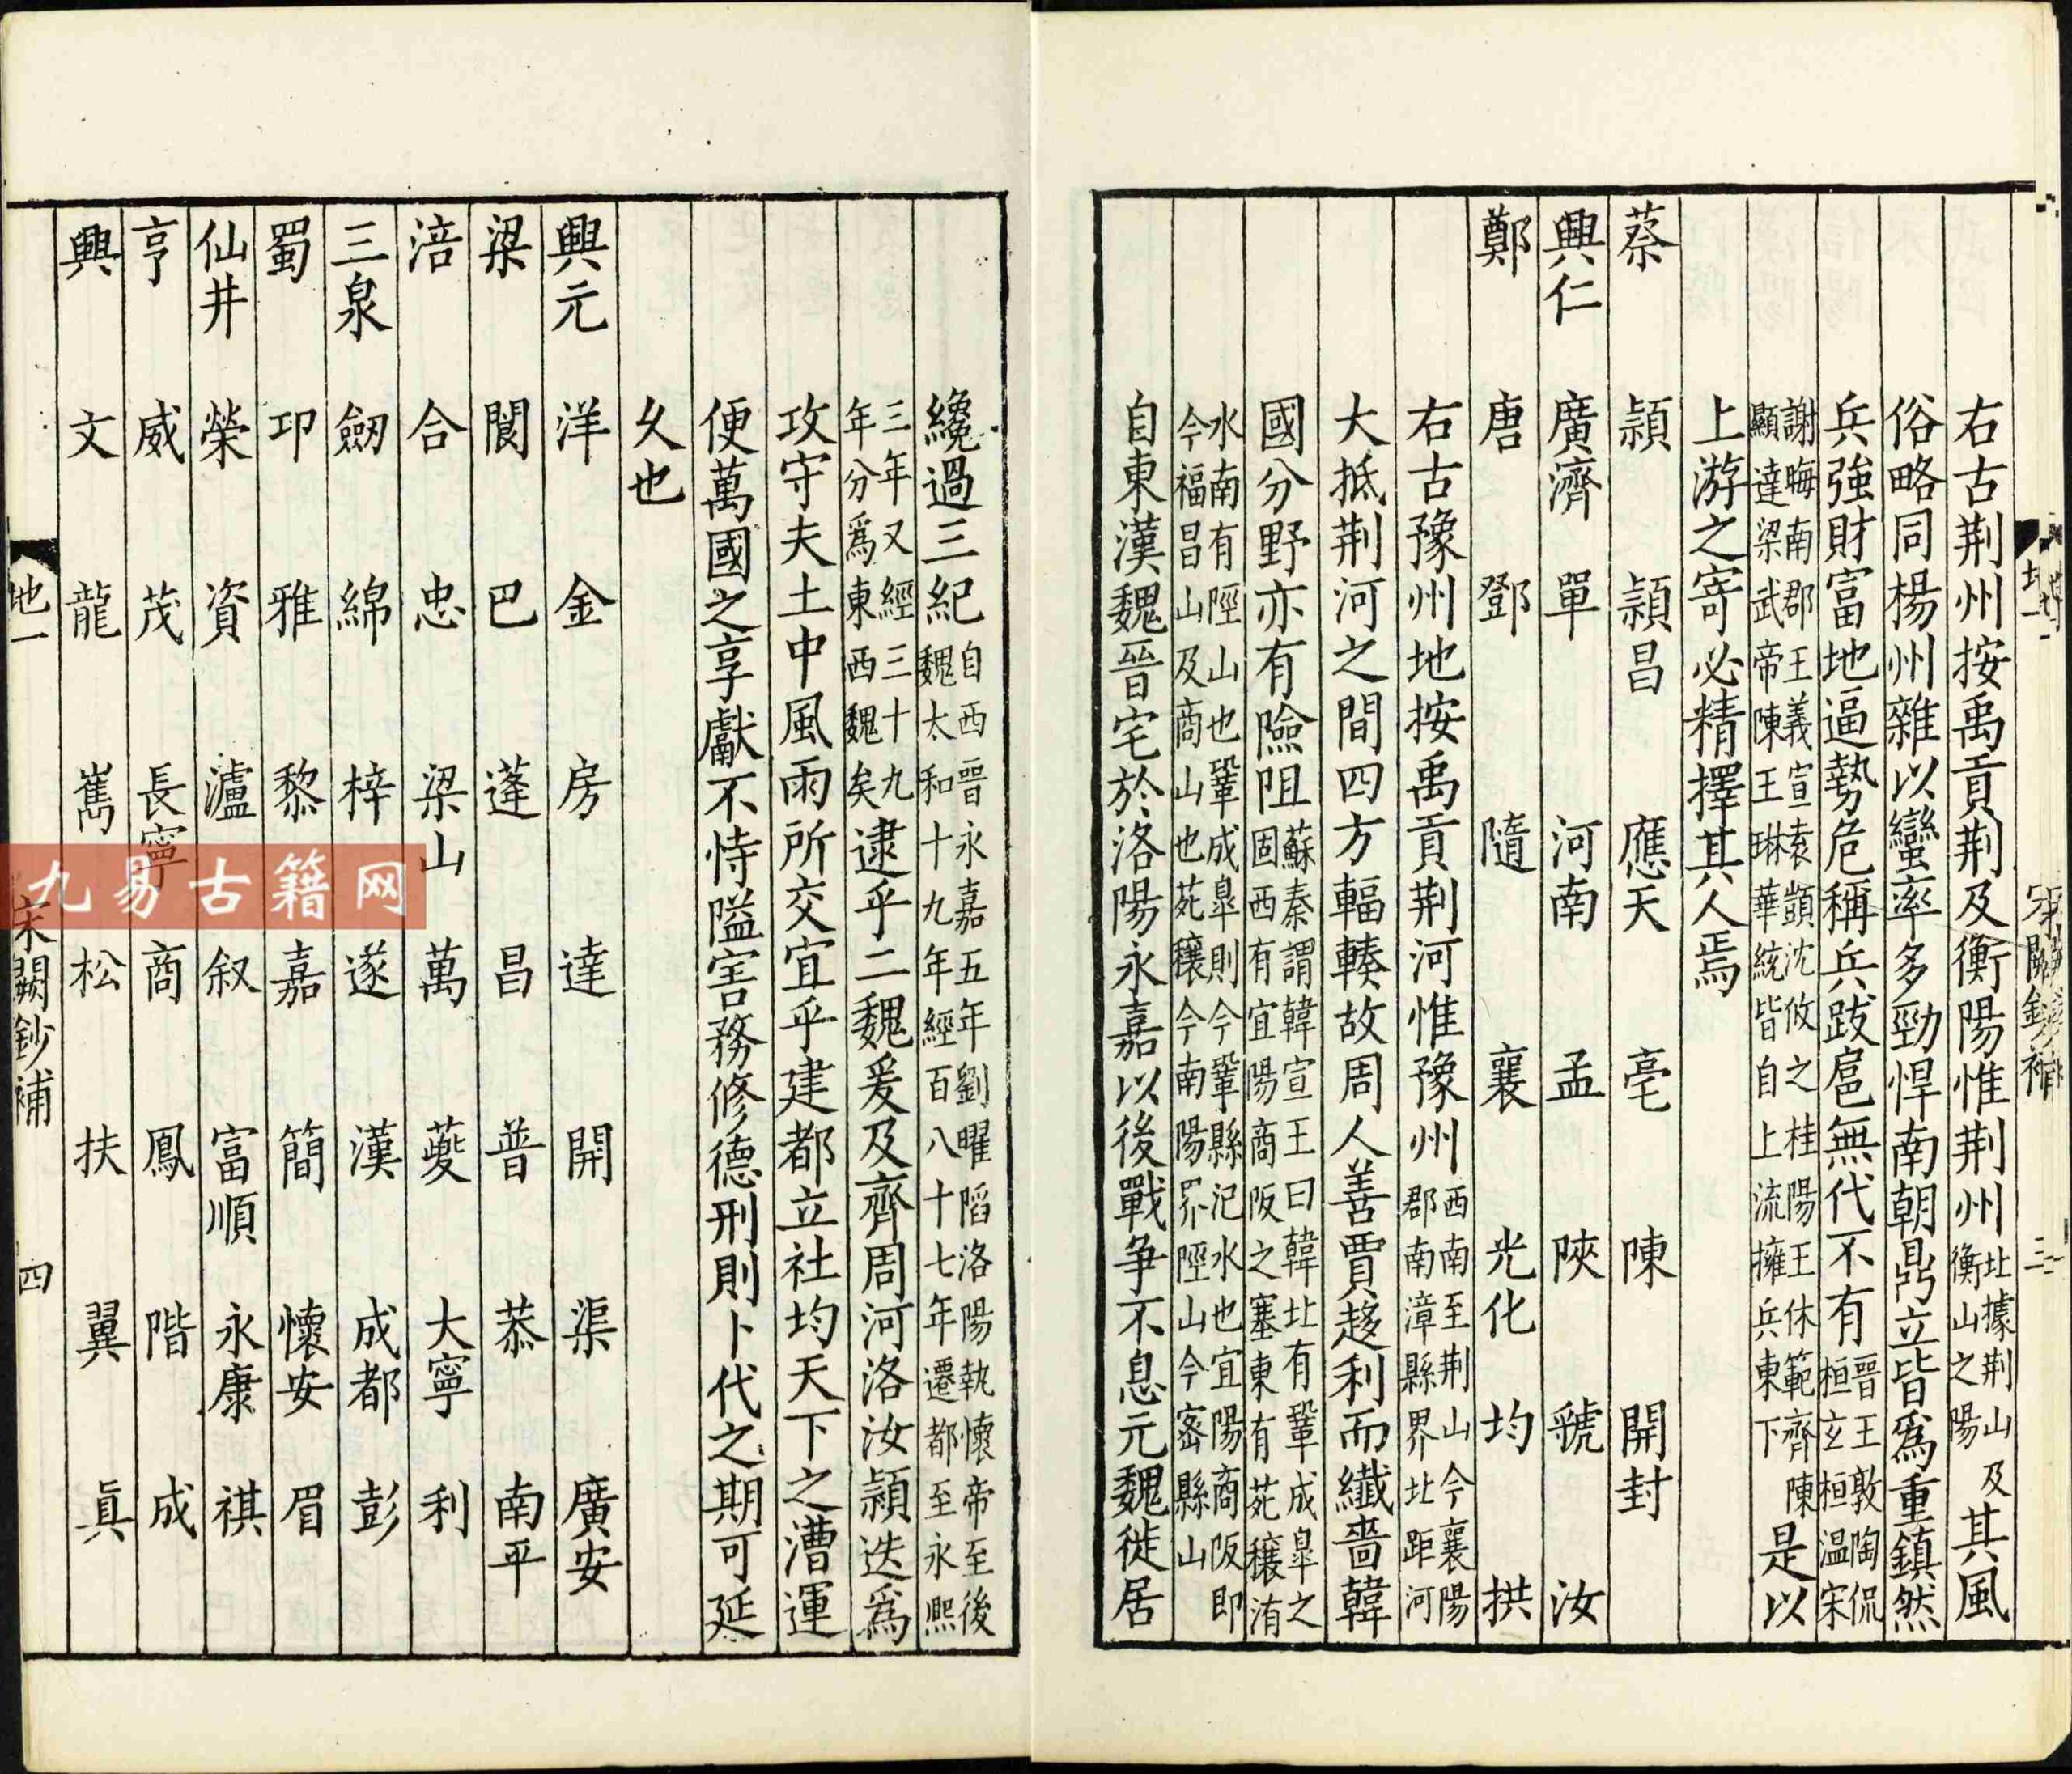 右古荆州按禹貢荆及衡陽惟荆州北據荆山及衡山之陽其風
俗略同楊州雜以蠻率多勁悍南朝鼎立皆爲重鎮然
兵強財富地逼勢危稱兵跋扈無代不有晉王敦陶侃桓玄桓温宋
謝晦南郡王義宣袁顗沈攸之桂陽王休範齊陳顯達梁武帝陳王琳華統皆自上流擁兵東下是以
上游之寄必精擇其人焉
蔡 潁 潁昌 應天 亳 陳 開封
興仁 廣濟 單 河南 孟 陝 虢 汝
鄭 唐 鄧 隨 襄 光化 均 拱
右古豫州地按禹貢荆河惟豫州西南至荆山今襄陽郡南漳縣界北距河
大抵荆河之間四方輻輳故周人善賈趍利而纎嗇韓
國分野亦有險阻蘇秦謂韓宣王曰韓北有鞏成皐之固西有宜陽商阪之塞東有菀穰洧
水南有陘山也鞏成皐則今鞏縣汜水也宜陽商阪即今福昌山及商山也菀穰今南陽界陘山今密縣山
自東漢魏晉宅於洛陽永嘉以後戰争不息元魏徙居
纔過三紀自西晉永嘉五年劉曜䧟洛陽執懷帝至後魏太和十九年經百八十七年遷都至永熙
三年又經三十九年分爲東西魏矣逮乎二魏爰及齊周河洛汝潁迭爲
攻守夫土中風雨所交宜乎建都立社均天下之漕運
便萬國之享獻不恃隘害務修德刑則卜代之期可延
久也
興元 洋 金 房 達 開 渠 廣安
梁 閬 巴 蓬 昌 普 恭 南平
涪 合 忠 梁山 萬 夔 大寧 利
三泉 劒 綿 梓 遂 漢 成都 彭
蜀 邛 雅 黎 嘉 簡 懷安 眉
仙井 榮 資 瀘 叙 富順 永康 祺
亨 威 茂 長寧 商 鳳 階 成
興 文 龍 嶲 松 扶 翼 眞
地一 宋闕鈔補 四
九易古籍网